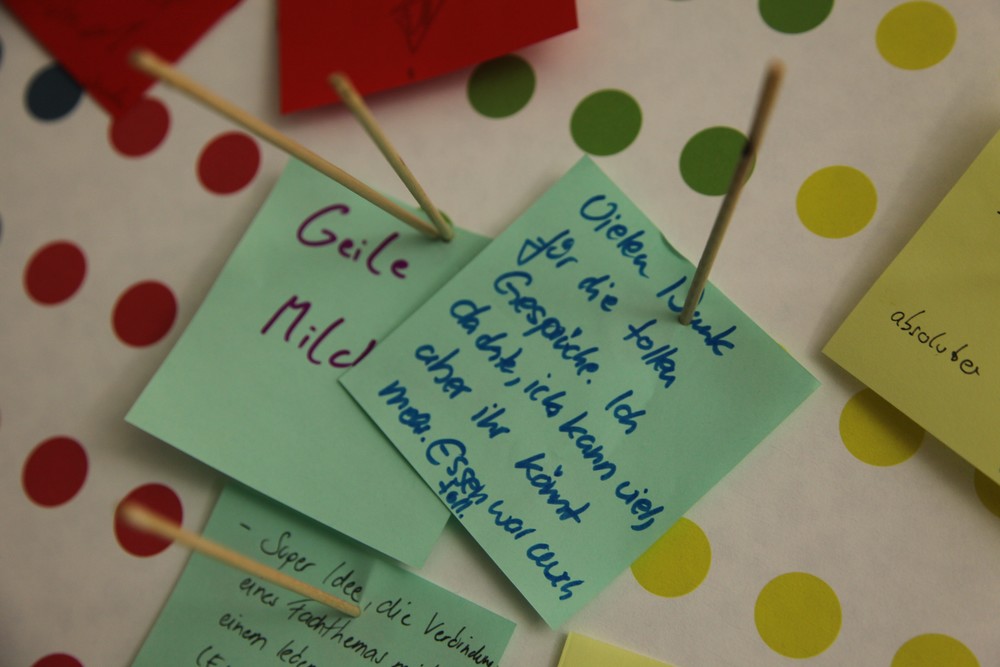 Geile
Mild
Vielen Dank
für die tollen
Gespräche. Ich
dachte, ich kann viel,
aber ihr könnt
mehr. Essen war auch
toll.
- Super Idee, die Verbindun
eines Fachthemas
einem
absoluter